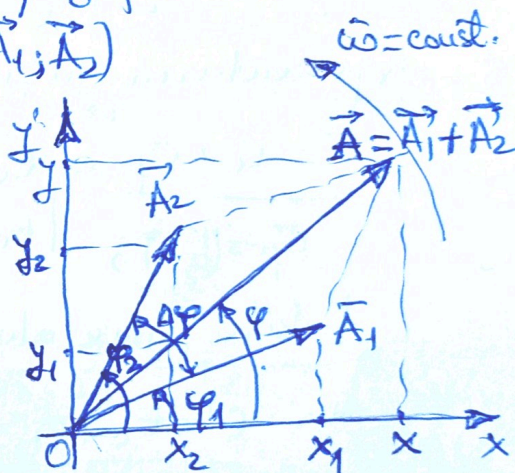 A⃗₁; A⃗₂)
ω⃗ = const.
y
y
A⃗ = A⃗₁ + A⃗₂
A⃗₂
y₂
Δφ
φ
A⃗₁
y₁
φ₂
φ₁
O
x₂
x₁
x
x